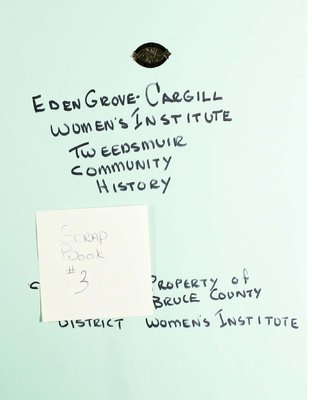 EDEN GROVE-CARGILL
WOMEN'S INSTITUTE
TWEEDSMUIR
COMMUNITY
HISTORY
SCRAP
BOOK
#
3
PROPERTY OF
BRUCE COUNTY
DISTRICT WOMEN'S INSTITUTE